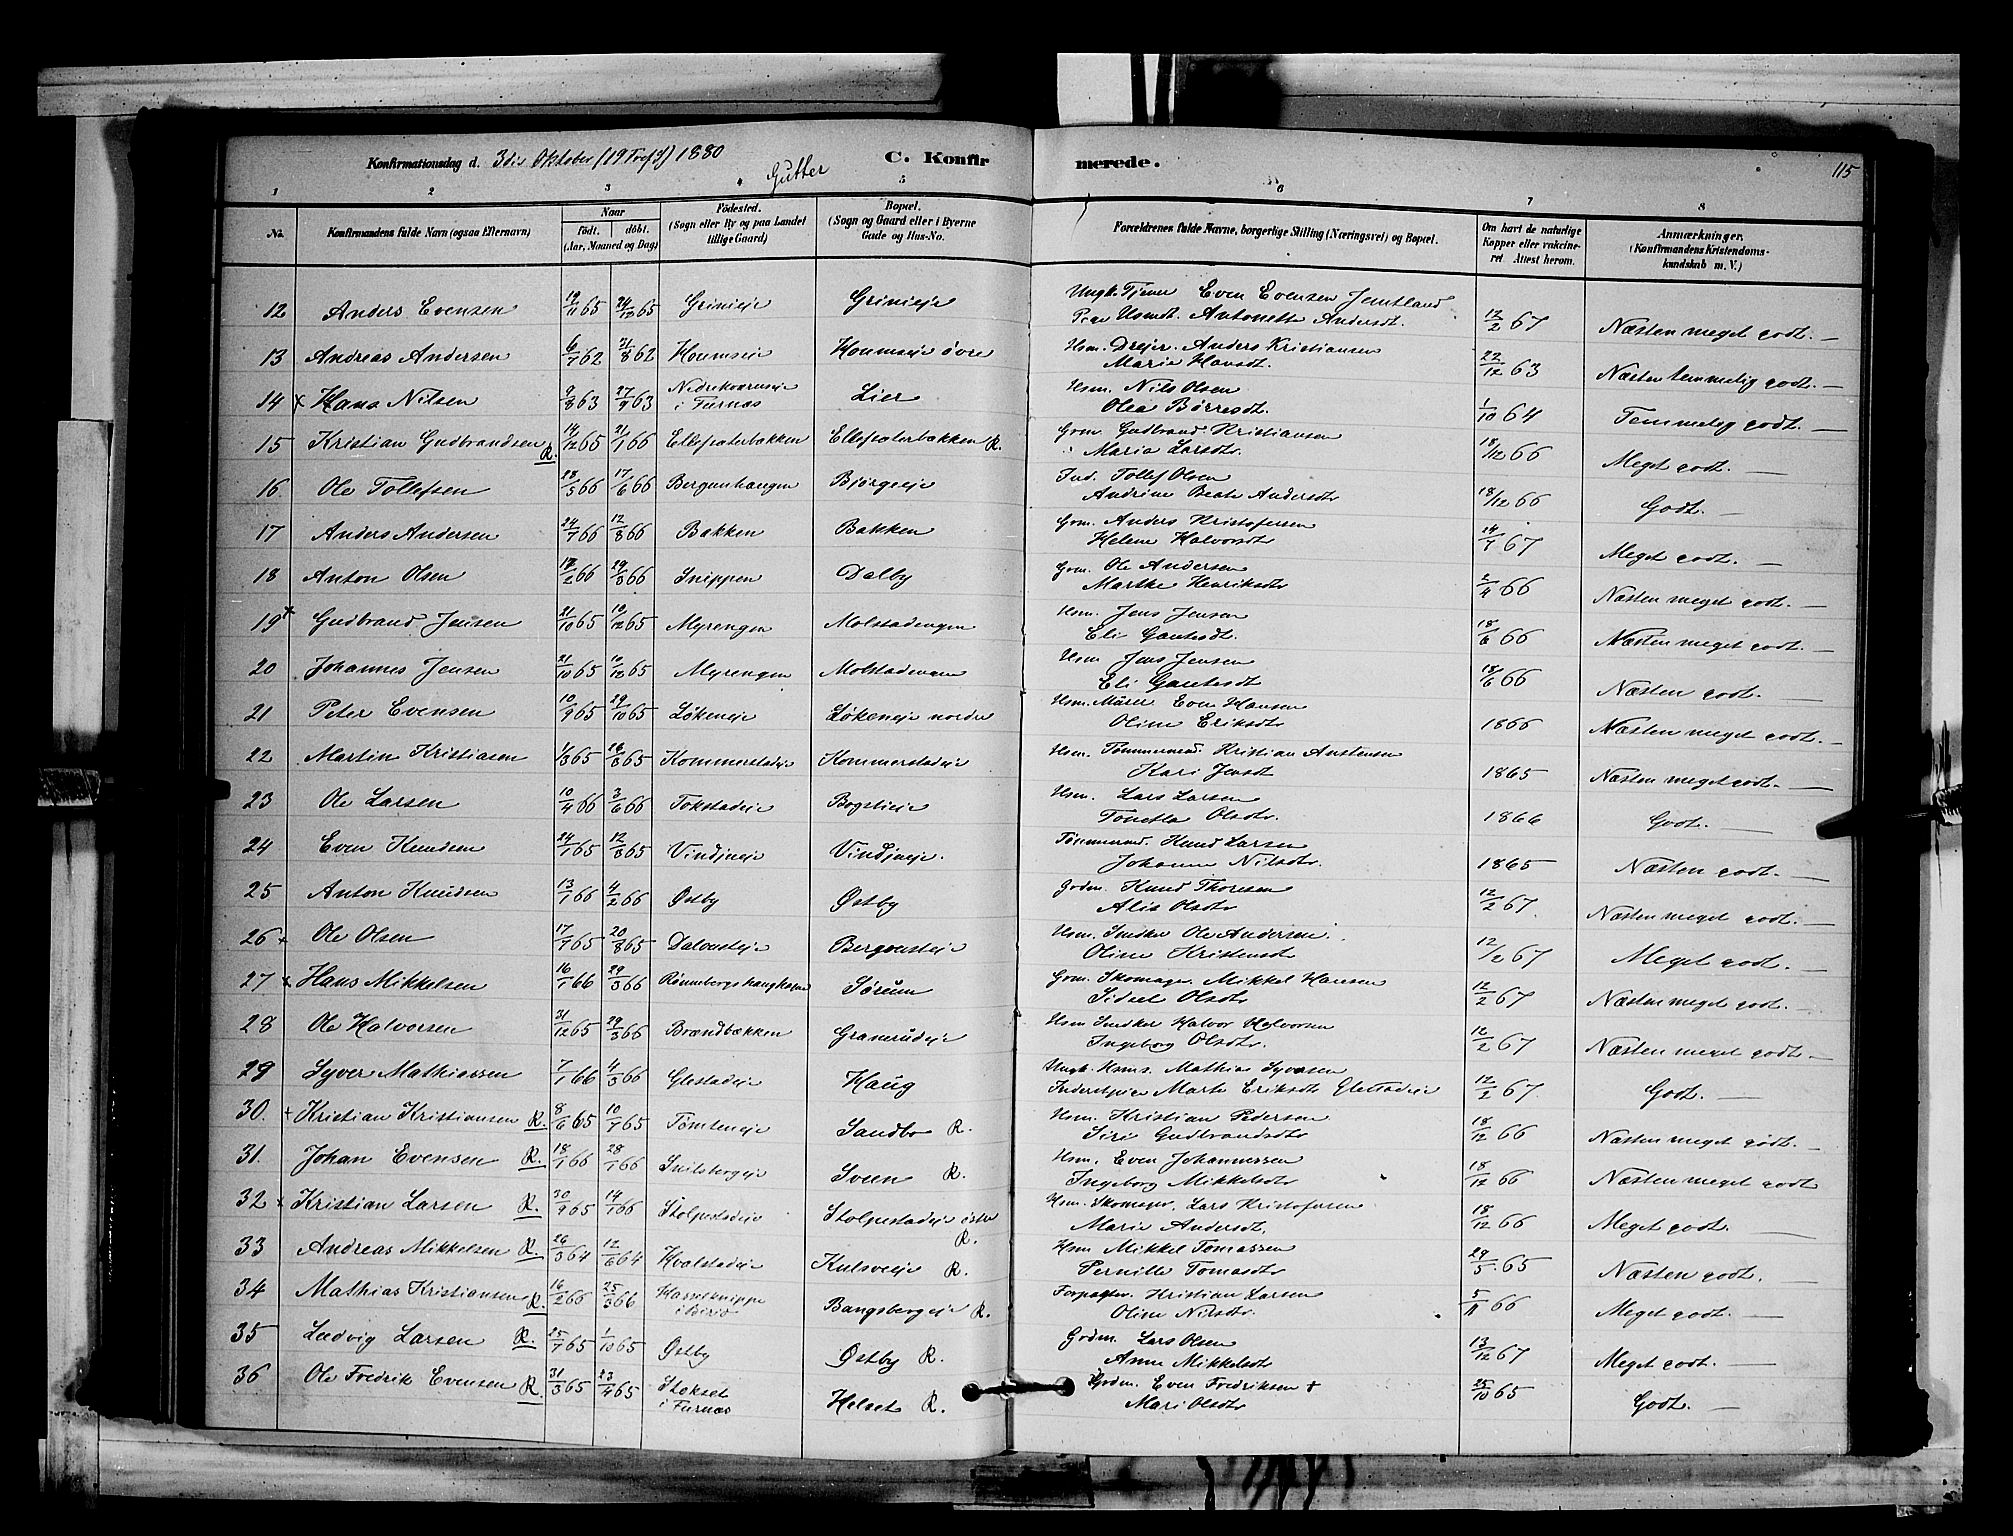 115
Konfirmationsdag d. 3die Oktober (19 Tref.) 1880 C. Konfir merede.
Gutter
1 2 3 4 5 6 7 8
No. Konfirmandens fulde Navn (ogsaa Efternavn) Naar født. døbt. (Aar, Maaned og Dag) Fødested. (Sogn eller By og paa Landet tillige Gaard) Bopæl. (Sogn og Gaard eller i Byerne Gade og Hus-No. Forældrenes fulde Navne, borgerlige Stilling (Næringsvei) og Bopæl. Om havt de naturlige Kopper eller vakcineret. Attest herom. Anmærkninger. (Konfirmandens Kristendomskundskab m. V.)
12 Anders Evensen 19/11 65 24/12 65 Grinieje Grinieje Ungk. Tjener Even Evensen Jemtland
Pige Antonette Andersdt. 12/2 67 Næsten meget godt. —
13 Andreas Andersen 6/7 62 31/8 62 Houmseje Houmseje øvre Hsm. Drejer Anders Kristiansen
Marie Hansdt. 22/12 63 Næsten temmelig godt. —
14 x Hans Nilsen 9/8 63 27/9 63 Nedrekværneje i Furnæs Lier Hsm. Nils Olsen
Olea Børresdt. 1/10 64 Temmelig godt. —
15 Kristian Gudbrandsen R. 14/12 65 21/1 66 Ellefsæterbakken Ellefsæterbakken R. Grm. Gudbrand Kristiansen
Maria Larsdtr. 18/12 66 Meget godt. —
16. Ole Tollefsen 28/3 66 17/6 66 Bergenhaugen Bjørgeeje Ind. Tollef Olsen
Andrine Beate Andersdtr 18/12 66 Godt. —
17 Anders Andersen 24/7 66 12/8 66 Bakken Bakken Grm. Anders Kristofersen
Helene Halvorsdtr 24/7 67 Meget godt. —
18 Anton Olsen 12/2 66 29/3 66 Snippen Dalby Grm. Ole Andersen
Marthe Henriksdtr 2/4 66 Næsten meget godt. —
19 x Gudbrand Jensen 21/10 65 10/12 65 Myrengen Molstadengen Hsm. Jens Jensen
Eli Gautesdt. 18/6 66 Næsten meget godt. —
20 Johannes Jensen 21/10 65 10/12 65 Myrengen Molstadengen Hsm Jens Jensen
Eli Gautesdt 18/6 66 Næsten godt. —
21 Peter Evensen 10/9 65 29/10 65 Løkeneje Løkeneje nordre Hsm. Murer Even Hansen
Oline Eriksdtr 1866 Næsten meget godt. —
22 Martin Kristiasen 1/3 65 Kommerstadeje Kommerstadeje Hsm. Tømmermd. Kristian Austensen
Kari Jensdt 1865 Næsten meget godt. —
23 Ole Larsen 10/4 66 3/6 66 Tokstadeje Bogslieje Hsm. Lars Larsen
Tonetta Olsdtr. 1866 Godt. —
24 Even Knudsen 24/1 65 12/3 65 Vindjueje Vindjueje. Tømmermd. Knud Larsen
Johanne Nilsdtr. 1865 Næsten godt. —
25 Anton Knudsen 13/1 66 4/2 66 Østby Østby Grdm. Knud Thoresen
Alis Olsdtr 12/2 67. Næsten meget godt. —
26 x Ole Olsen 17/7 65 20/8 65 Dalvseteje Bergenseteje Hsm. Snedker Ole Andersen
Oline Kristensdt 12/2 67 Meget godt. —
27 x Hans Mikkelsen 16/1 66 29/3 66 Rønnebergshaughagen Sørum Grm. Skomager Mikkel Hansen
Sidsel Olsdtr 12/2 67 Næsten meget godt. —
28 Ole Halvorsen 31/12 65 29/3 66 Brændbækken Granerudeje Hsm Snedker Halvor Halvorsen
Ingeborg Olsdtr. 12/2 67 Næsten meget godt. —
29 Syver Mathiassen 7/1 66 4/3 66 Glestadeje Haug Ungk. Hsms. Mathias Syversen
Inderstpige Marte Eriksdt Glestadeje 12/2 67. Godt. —
30. + Kristian Kristiansen R. 8/6 65 10/7 65 Tømteneje Sandbo R. Hsm. Kristian Pedersen
Siri Gudbrandsdtr 18/12 66 Næsten meget godt. —
31. Johan Evensen R. 18/1 66 28/1 66 Snilsbergeje Sveen R. Hsm. Even Johannessen
Ingeborg Mikkelsdtr 18/12 66 Næsten meget godt
32 x Kristian Larsen R. 30/9 65 14/1 66 Stolpestadeje Stolpestadeje østre R. Hsm. Skomager. Lars Kristofersen
Marie Andersdt. 18/12 66 Meget godt. —
33 Andreas Mikkelsen R. 26/3 64 12/6 64 Kvalstadeje Kulsveeje R. Hsm Mikkel Tomassen
Pernille Tomasdtr 29/5 65 Næsten godt. —
34 Mathias Kristiansen R. 16/2 66 25/3 66 Hasselknippe i Biriø Bangsbergeje R. Forpagter. Kristian Larsen
Oline Nilsdtr. 5/11 66 Meget godt. —
35 Ludvig Larsen R. 25/7 65 1/10 65 Østby Østby R. Grdm. Lars Olsen
Anne Mikkelsdtr 13/12 67 Meget godt. —
36 Ole Fredrik Evensen R. 31/3 65 23/4 65 Stokset i Furnæs Helset R. Grdm. Even Fredriksen +
Mari Olsdtr 25/10 65 Godt. —